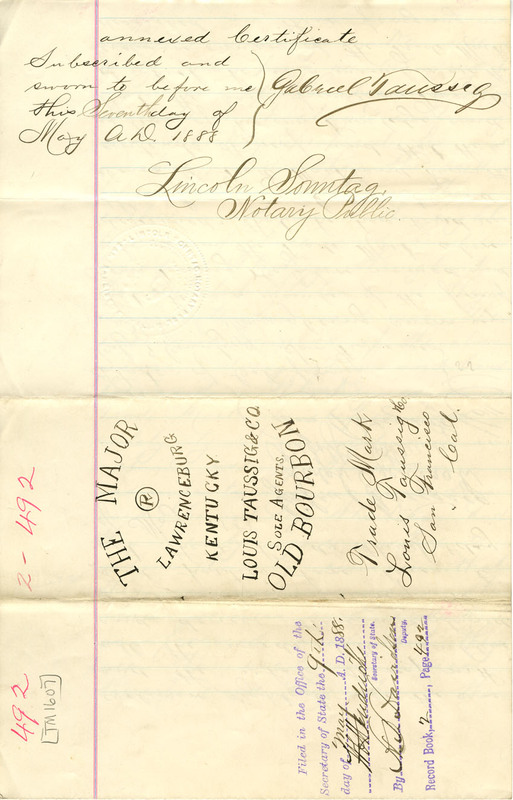 annexed Certificate
Subscribed and
sworn to before me
this Seventh day of
May A.D. 1888
Gabriel Taussig
Lincoln Sonntag,
Notary Public.
THE MAJOR
R
LAWRENCEBURG
KENTUCKY
LOUIS TAUSSIG & CO.
SOLE AGENTS.
OLD BOURBON
Trade Mark
Louis Taussig & Co.
San Francisco
Cal.
2-492
492
TM1607
Filed in the Office of the
Secretary of State the 9th
day of May A.D. 1888.
Secretary of State.
By
Deputy.
Record Book 2, Page 492